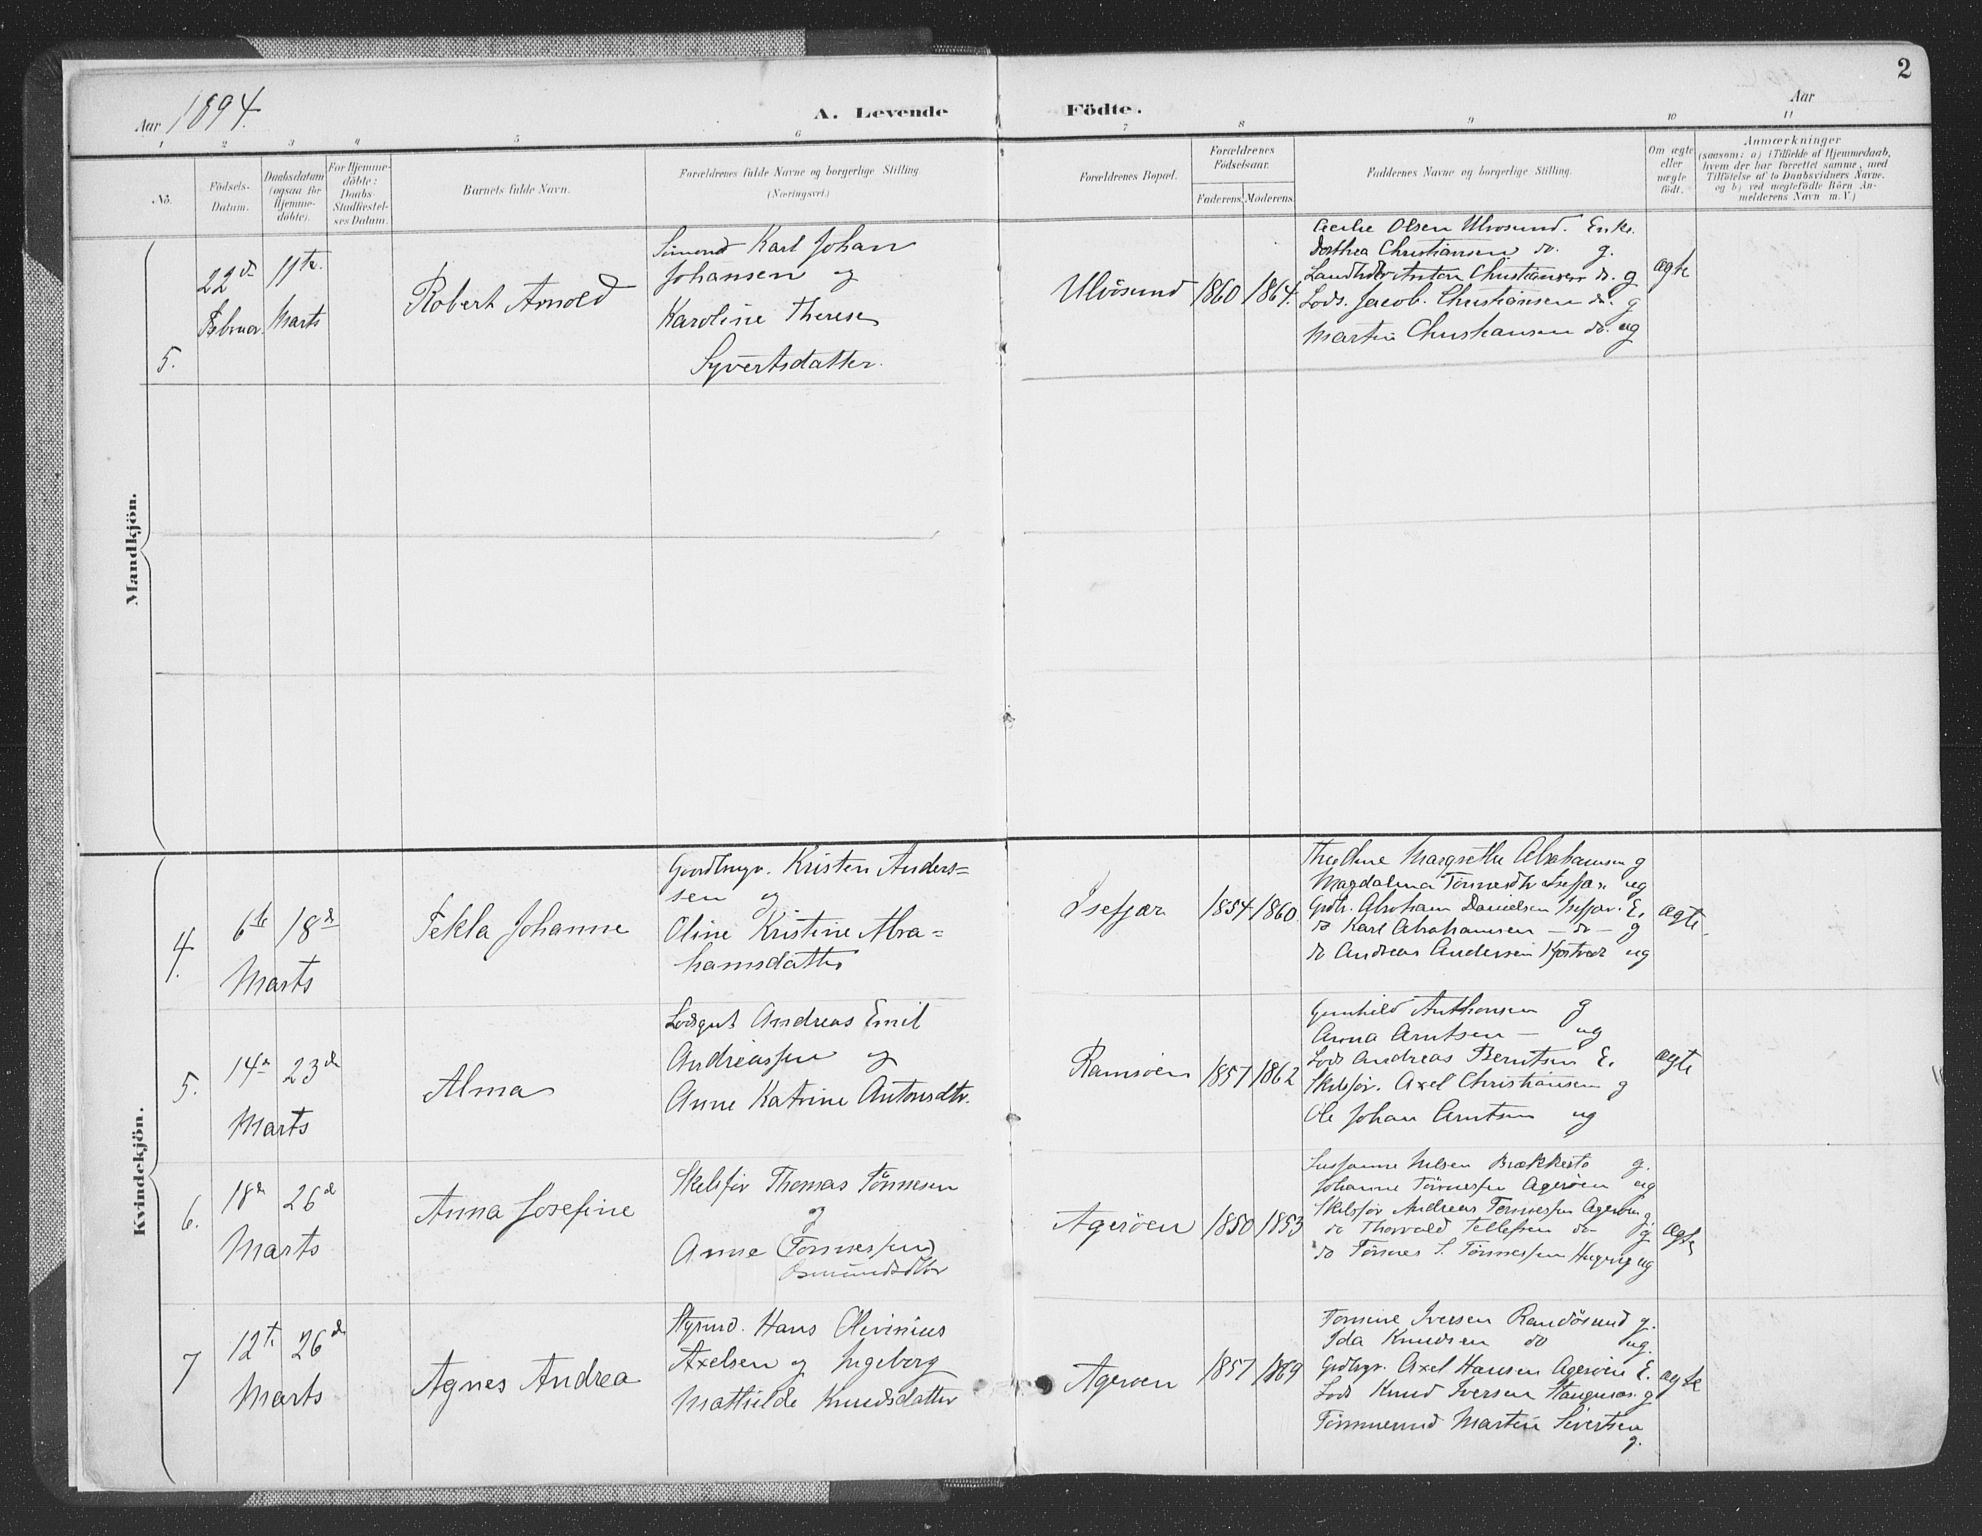 2
Aar 1894.
A. Levende Födte.
Aar
1 2 3 4 5 6 7 8 9 10 11
No.
Födsels-
Datum.
Daabsdatum
(ogsaa for
Hjemme-
döbte).
For Hjemme-
döbte:
Daabs-
Stadfæstel-
ses Datum.
Barnets fulde Navn.
Forældrenes fulde Navne og borgerlige Stilling
(Næringsvei.)
Forældrenes Bopæl.
Forældrenes
Födselsaar.
Faderens. Moderens.
Faddernes Navne og borgerlige Stilling.
Om ægte
eller
uægte
födt.
Anmærkninger
(saasom: a) i Tilfælde af Hjemmedaab,
hvem der har forrettet samme, med
Tilföielse af to Daabsvidners Navne.
og b) ved uægtefödte Börn An-
melderens Navn m. V.)
Mandkjön.
5.
22de
Februar
11te
Marts
Robert Arnold
Simond Karl Johan
Johansen og
Karoline Therese
Syvertsdatter.
Ulvösund
1860
1864.
Cecilie Olsen Ulvosund. Enke.
Dorthea Christiansen do. g.
Anton Christiansen do. g
Lods. Jacob. Christiansen do. g
Martin Christiansen do. ug
ægte
Kvindekjön.
4.
6te 18de
Marts
Tekla Johanne
Gaardbrugr. Kristen Anders=
sen og
Oline Kristine Abra=
hamsdatter
Isefjær
1854
1860
Margrethe Abrahamsen g
Magdalena Tønnesdtr Isefjær ug
Grdbr. Abraham Danielsen Isefjær. E.
do Karl Abrahamsen — do — g
do Andreas Andersen ug
ægte.
5.
14de 23de
Marts
Alma
Lodsgut Andreas Emil
Andreassen og
Anne Katrine Antonsdtr.
Ramsöen
1857
1862
Gunhild Anthonsen g
Anna Arntsen — ug
Lods Andreas Berntsen E.
Skibsför. Axel Christiansen g
Ole Johan Arntsen ug
ægte
6.
18de 26de
Marts
Anna Josefine
Skibsför Thomas Tönnesen
og
Anne (Tönnessen)
Osmundsdtr
Agerøen
1850
1853
Susanne Nilsen Brekkestø g.
Johanne Tönnessen Agerøen ug
Skibsför Andreas Tönnessen Agerøen g.
do Thorvald Tellefsen do g
do Tönnes S. Tönnessen ug
ægte
7
12te 26de
Marts
Agnes Andrea
Styrmd. Hans Olivinius
Axelsen og Ingeborg
Mathilde Knudsdatter
Agerøen
1857
1869
Tomine Iversen Randösund g.
Ida Knudsen do ug.
Grdbrgr. Axel Hansen Agerøen E.
Lods Knud Iversen g
Tömmermd Martin Sivertsen
g.
ægte